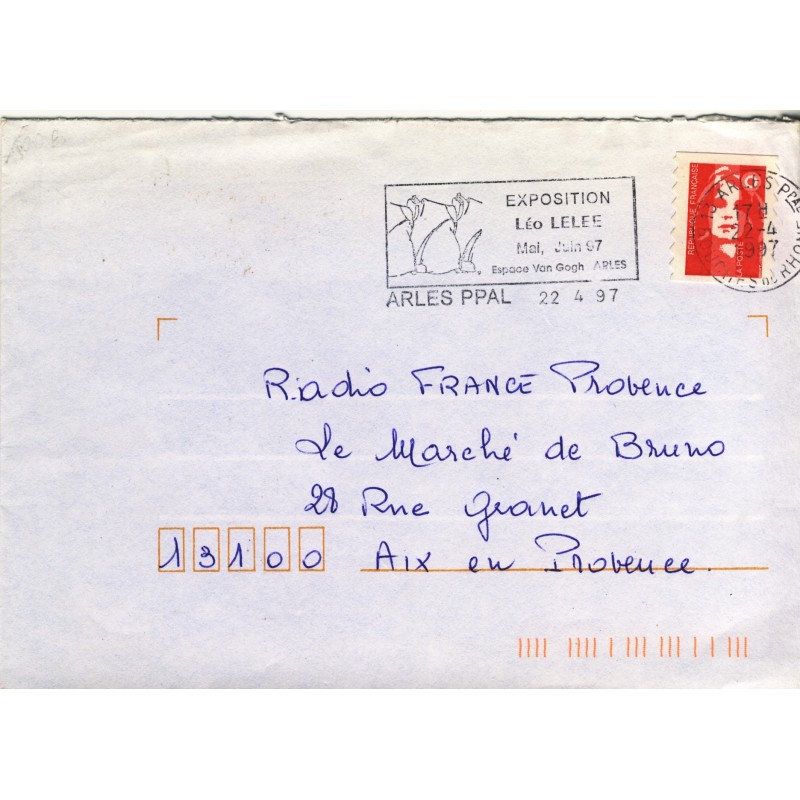 EXPOSITION
Léo LELEE
Mai, Juin 97
Espace Van Gogh ARLES
ARLES PPAL 22 4 97
REPUBLIQUE FRANÇAISE
LA POSTE
ARLES PPAL
17H
22-4
1997
Radio FRANCE Provence
Le Marché de Bruno
28 Rue Granet
13100 Aix en Provence.